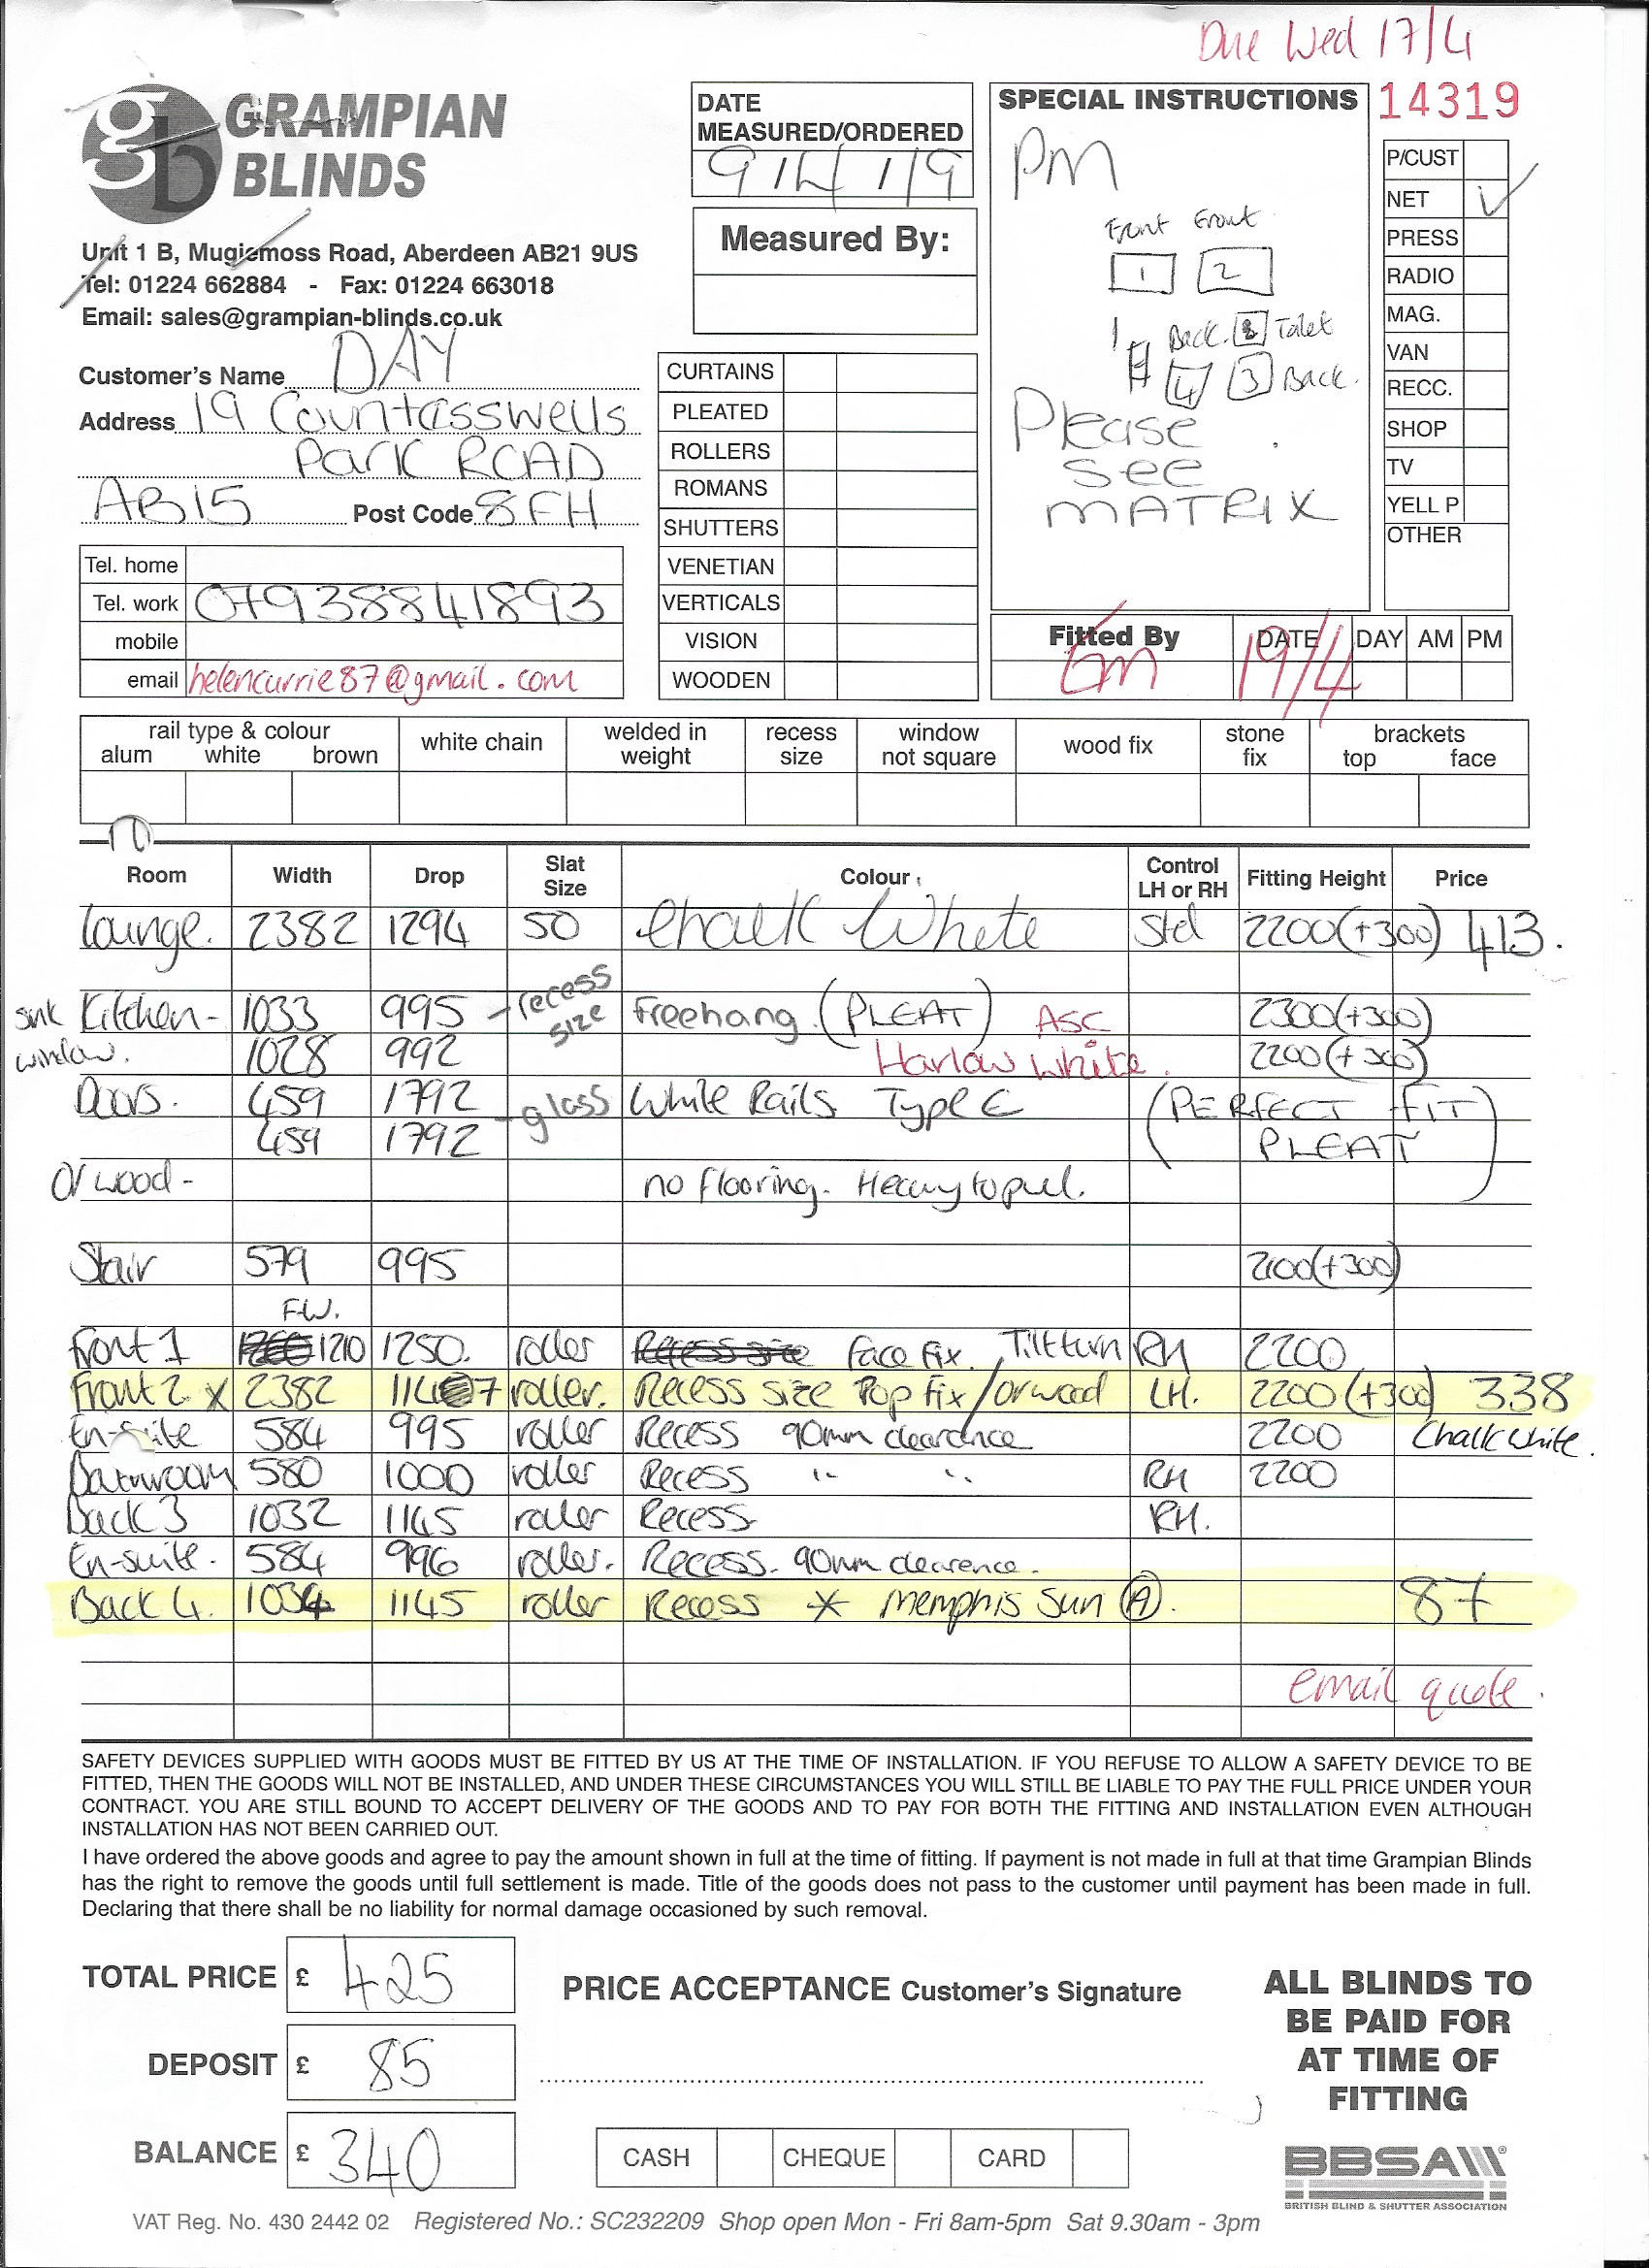 Due Wed 17/4
GRAMPIAN
BLINDS
Unit 1 B, Mugiemoss Road, Aberdeen AB21 9US
Tel: 01224 662884 - Fax: 01224 663018
Email: sales@grampian-blinds.co.uk
Customer's Name DAY
Address 19 Countesswells
Park ROAD
AB15 Post Code 8FH
Tel. home
Tel. work 07938841893
mobile
email helencurrie87@gmail.com
DATE
MEASURED/ORDERED
9/4/19
Measured By:
CURTAINS
PLEATED
ROLLERS
ROMANS
SHUTTERS
VENETIAN
VERTICALS
VISION
WOODEN
SPECIAL INSTRUCTIONS
PM
Front Front
1 2
Back. Toilet
4 3 Back.
Please
see
MATRIX
14319
P/CUST
NET ✓
PRESS
RADIO
MAG.
VAN
RECC.
SHOP
TV
YELL P
OTHER
Fitted By DATE DAY AM PM
19/4
rail type & colour white chain welded in weight recess size window not square wood fix stone fix brackets
alum white brown top face
Room Width Drop Slat Size Colour Control LH or RH Fitting Height Price
Lounge. 2382 1294 50 Chalk White Std 2200(+300) 413.
sink Kitchen - 1033 995 - recess size Freehang (PLEAT) ASC 2300(+300)
window. 1028 992 Harlow White. 2200(+300)
Doors. 459 1792 - glass White Rails Type C (PERFECT FIT
459 1792 PLEAT)
Or wood - no flooring. Heavy to pull.
Stair 579 995 2100(+300)
F.W.
Front 1 1210 1250. roller Face Fix. Tilt turn RH 2200
Front 2 x 2382 1147 roller. Recess Size Top fix / or wood LH. 2200(+300) 338
En-suite 584 995 roller Recess 90mm clearance 2200 Chalk White.
Bathroom 580 1000 roller Recess " " RH 2200
Back 3 1032 1145 roller Recess RH.
En-suite. 584 996 roller. Recess. 90mm clearence.
Back 4. 1034 1145 roller Recess * Memphis Sun (A). 87
email quote.
SAFETY DEVICES SUPPLIED WITH GOODS MUST BE FITTED BY US AT THE TIME OF INSTALLATION. IF YOU REFUSE TO ALLOW A SAFETY DEVICE TO BE
FITTED, THEN THE GOODS WILL NOT BE INSTALLED, AND UNDER THESE CIRCUMSTANCES YOU WILL STILL BE LIABLE TO PAY THE FULL PRICE UNDER YOUR
CONTRACT. YOU ARE STILL BOUND TO ACCEPT DELIVERY OF THE GOODS AND TO PAY FOR BOTH THE FITTING AND INSTALLATION EVEN ALTHOUGH
INSTALLATION HAS NOT BEEN CARRIED OUT.
I have ordered the above goods and agree to pay the amount shown in full at the time of fitting. If payment is not made in full at that time Grampian Blinds
has the right to remove the goods until full settlement is made. Title of the goods does not pass to the customer until payment has been made in full.
Declaring that there shall be no liability for normal damage occasioned by such removal.
TOTAL PRICE £ 425
DEPOSIT £ 85
BALANCE £ 340
PRICE ACCEPTANCE Customer's Signature
CASH CHEQUE CARD
ALL BLINDS TO
BE PAID FOR
AT TIME OF
FITTING
BBSA
BRITISH BLIND & SHUTTER ASSOCIATION
VAT Reg. No. 430 2442 02 Registered No.: SC232209 Shop open Mon - Fri 8am-5pm Sat 9.30am - 3pm